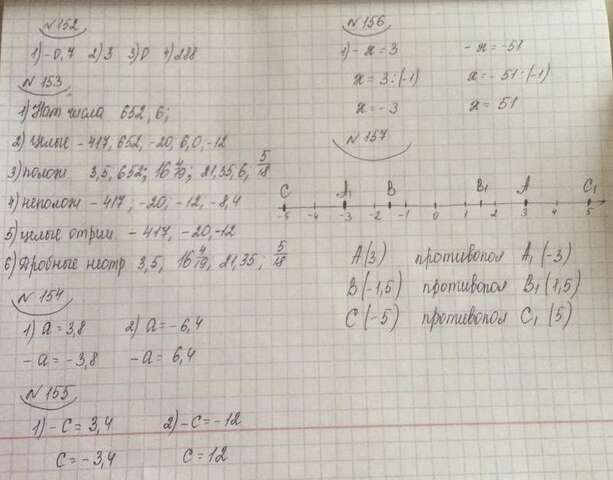 №152
1) -0,7 2) 3 3) 0 4) 288
№153
1) Нат числа 652, 6;
2) Целые -417, 652, -20, 6, 0, -12
3) полож 3,5, 652; 16 4/19; 21,35, 6, 5/18
4) неполож -417; -20; -12, -8,4
5) целые отриц - 417, -20, -12
6) Дробные неотр 3,5, 16 4/19, 21,35; 5/18
№154
1) a = 3,8 2) a = -6,4
-a = -3,8 -a = 6,4
№155
1) -c = 3,4 2) -c = -12
c = -3,4 c = 12
№156
1) -x = 3 -x = -51
x = 3 : (-1) x = -51 : (-1)
x = -3 x = 51
№157
C A1 B B1 A C1
-5 -4 -3 -2 -1 0 1 2 3 4 5
A(3) противопол A1 (-3)
B(-1,5) противопол B1 (1,5)
C(-5) противопол C1 (5)